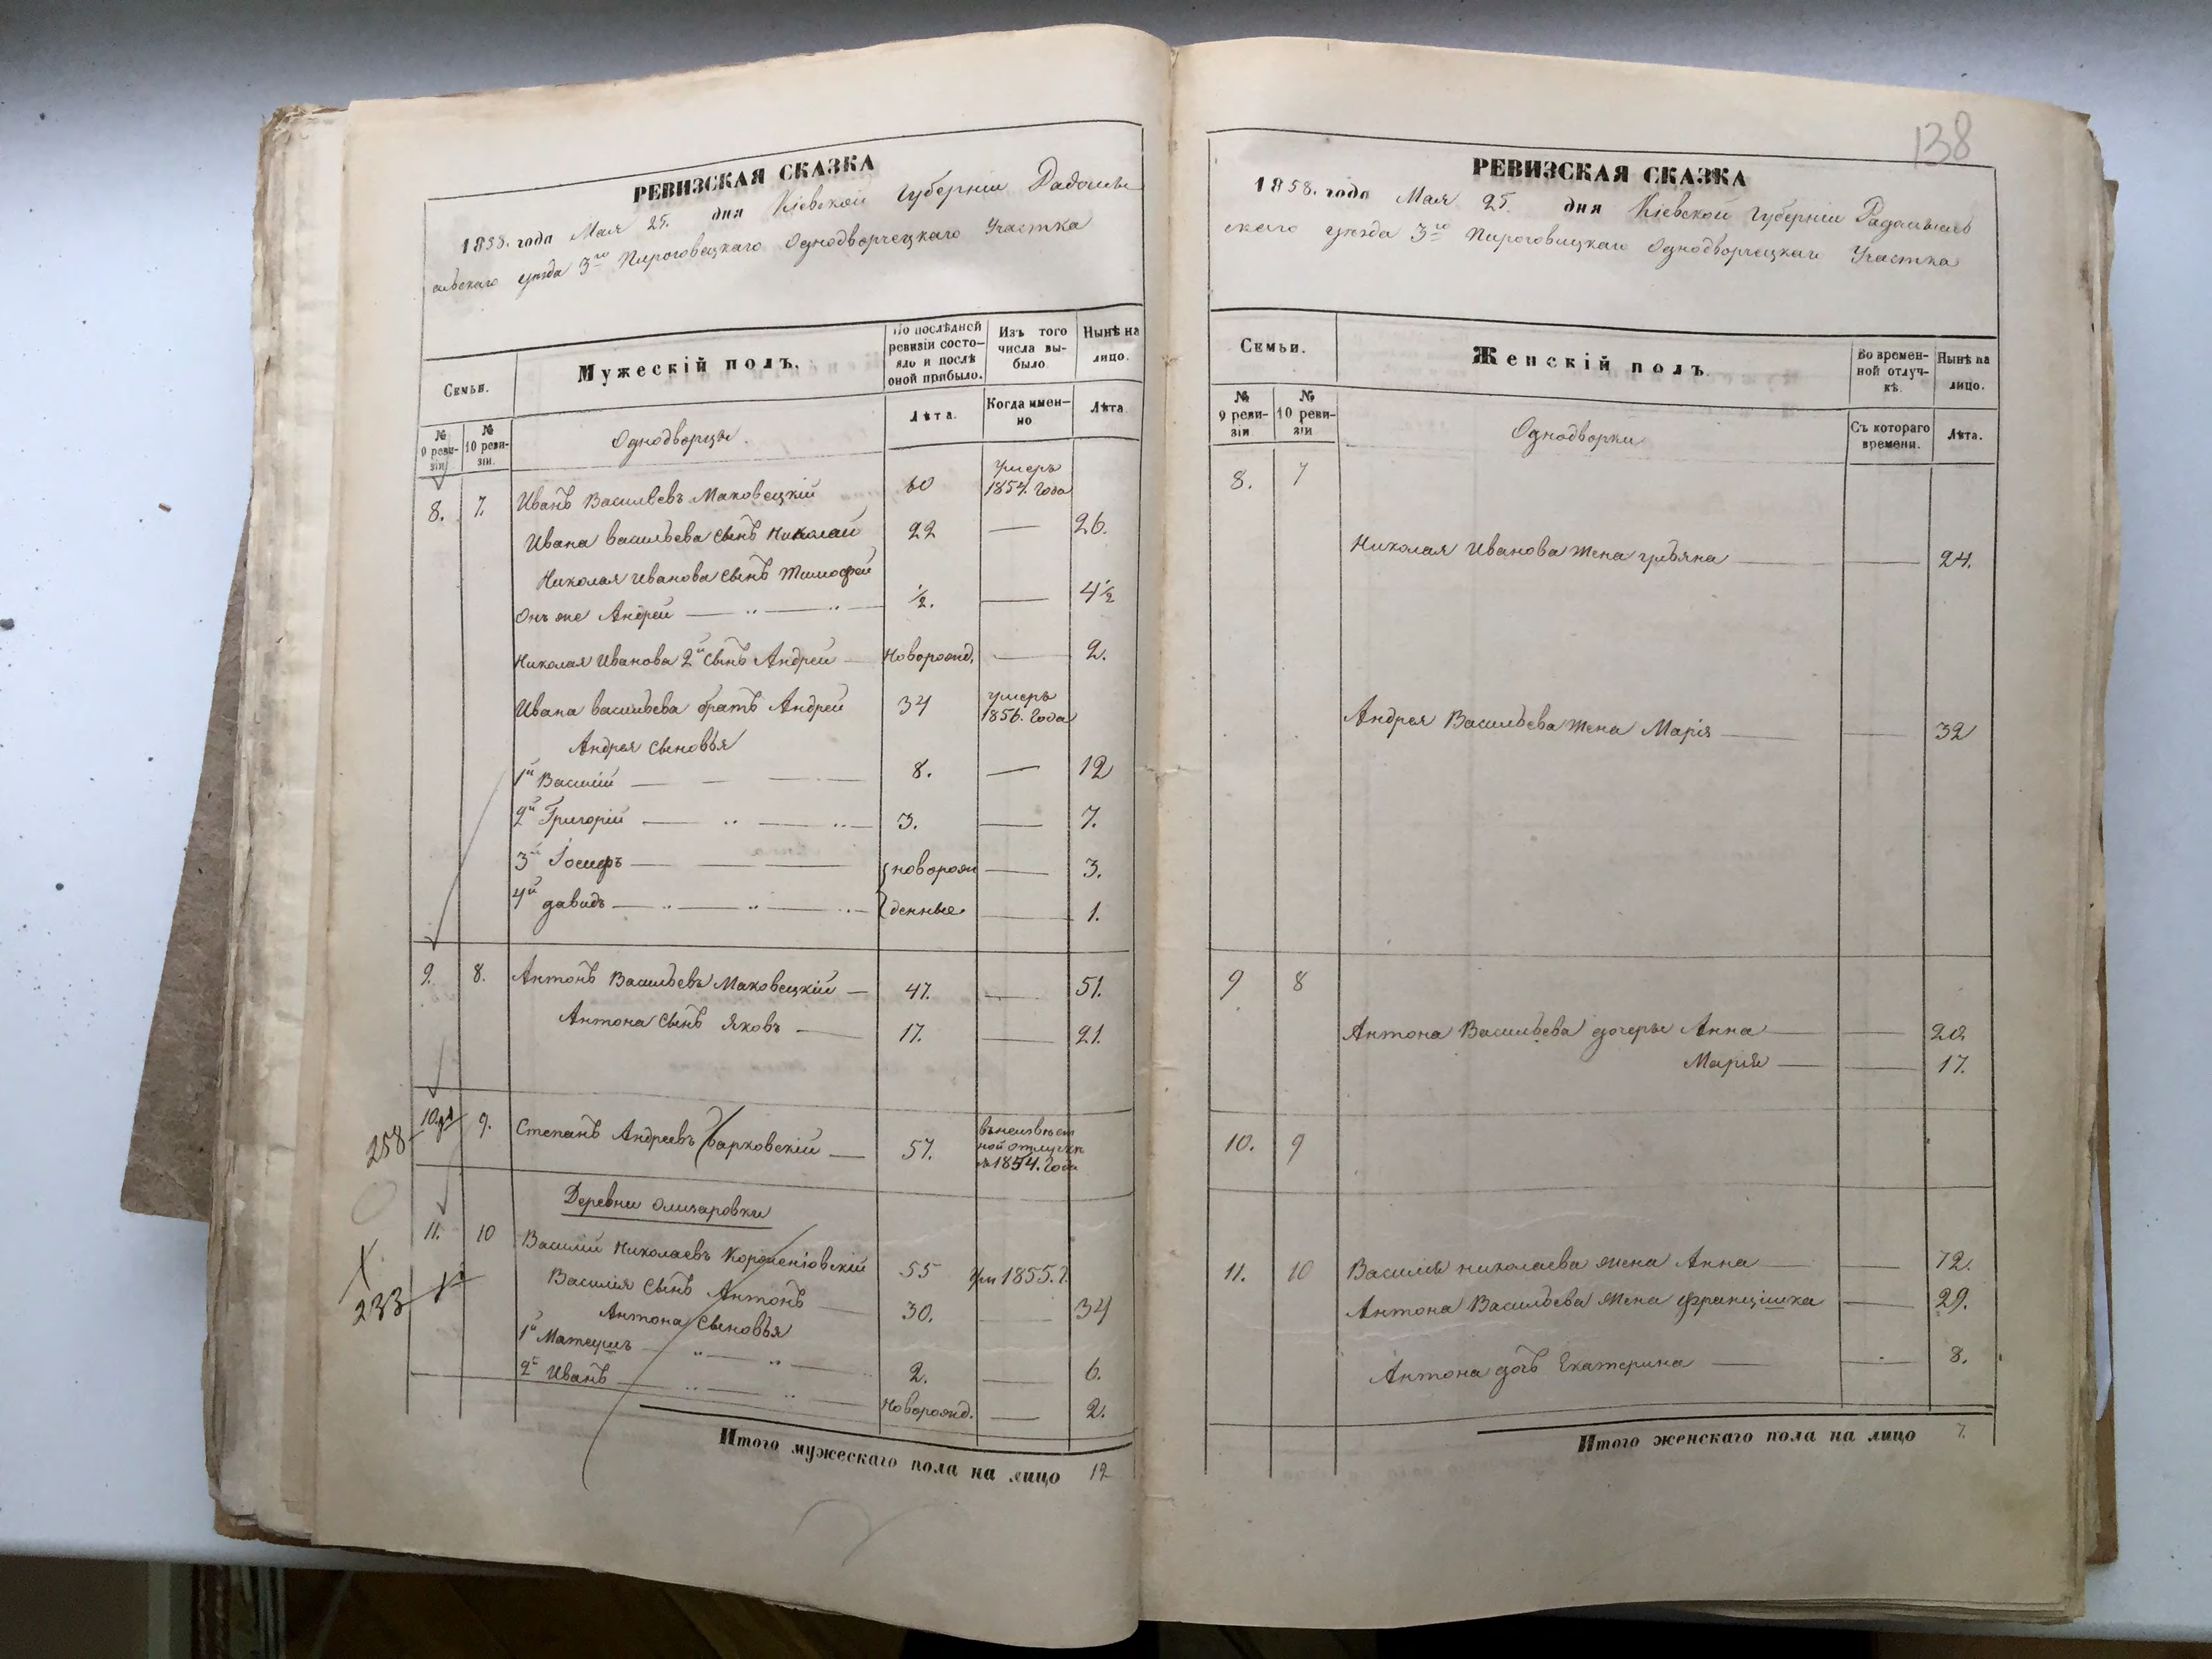 РЕВИЗСКАЯ СКАЗКА
1858. года Мая 25. дня Кіевской Губерніи Радомысль
скаго уезда 3го Пироговецкаго Однодворческаго Участка
Семьи.
Мужескій полъ.
По послѣдней ревизіи состо-
яло и послѣ оной прибыло.
Изъ того числа вы-
было.
Нынѣ на лицо.
№ 9 реви-
зіи
№ 10 реви-
зіи.
Однодворцы.
Лѣта.
Когда имен-
но
Лѣта
8. 7. Иванъ Васильевъ Маковецкій 60 умеръ 1854. года
Ивана васильева сынъ Николай 22 — 26.
Николая Иванова сынъ Тимофей
Онъ же Андрей — ½. — 4½
Николая Иванова 2й сынъ Андрей — Новорожд. — 2.
Ивана васильева братъ Андрей 34 умеръ 1856. года
Андрея сыновья
1й Василій — 8. — 12
2й Григорій — 3. — 7.
3й Іосифъ — новорож — 3.
4й давидъ — денные — 1.
9. 8. Антонъ Васильевъ Маковецкій — 47. — 51.
Антона сынъ Яковъ — 17. — 21.
258
10. 9. Степанъ Андреевъ Барковскій — 57. въ неизвѣст
ной отлучкѣ
съ 1854. года
Деревни Олизаровки
11. 10 Василій Николаевъ 55 Ум 1855. г.
233
Василія сынъ Антонъ — 30. — 34
Антона сыновья
1й Матеушъ — 2. — 6.
2й Иванъ — Новорожд. — 2.
Итого мужескаго пола на лицо 12
138
РЕВИЗСКАЯ СКАЗКА
1858. года Мая 25. дня Кіевской Губерніи Радомысль
скаго уезда 3го Пироговицкаго Однодворческаго Участка
Семьи.
Женскій полъ
Во времен-
ной отлуч-
кѣ.
Нынѣ на лицо.
№ 9 реви-
зіи
№ 10 реви-
зіи
Однодворки
Съ котораго времени.
Лѣта.
8. 7
Николая Иванова жена ульяна — 24.
Андрея Васильева жена Марія — 32
9 8
Антона Васильева дочеры Анна — 20.
Марія — 17.
10. 9
11. 10 Василія николаева жена Анна — 72.
Антона Васильева жена францишка — 29.
Антона дочь Екатерина — 8.
Итого женскаго пола на лицо 7.